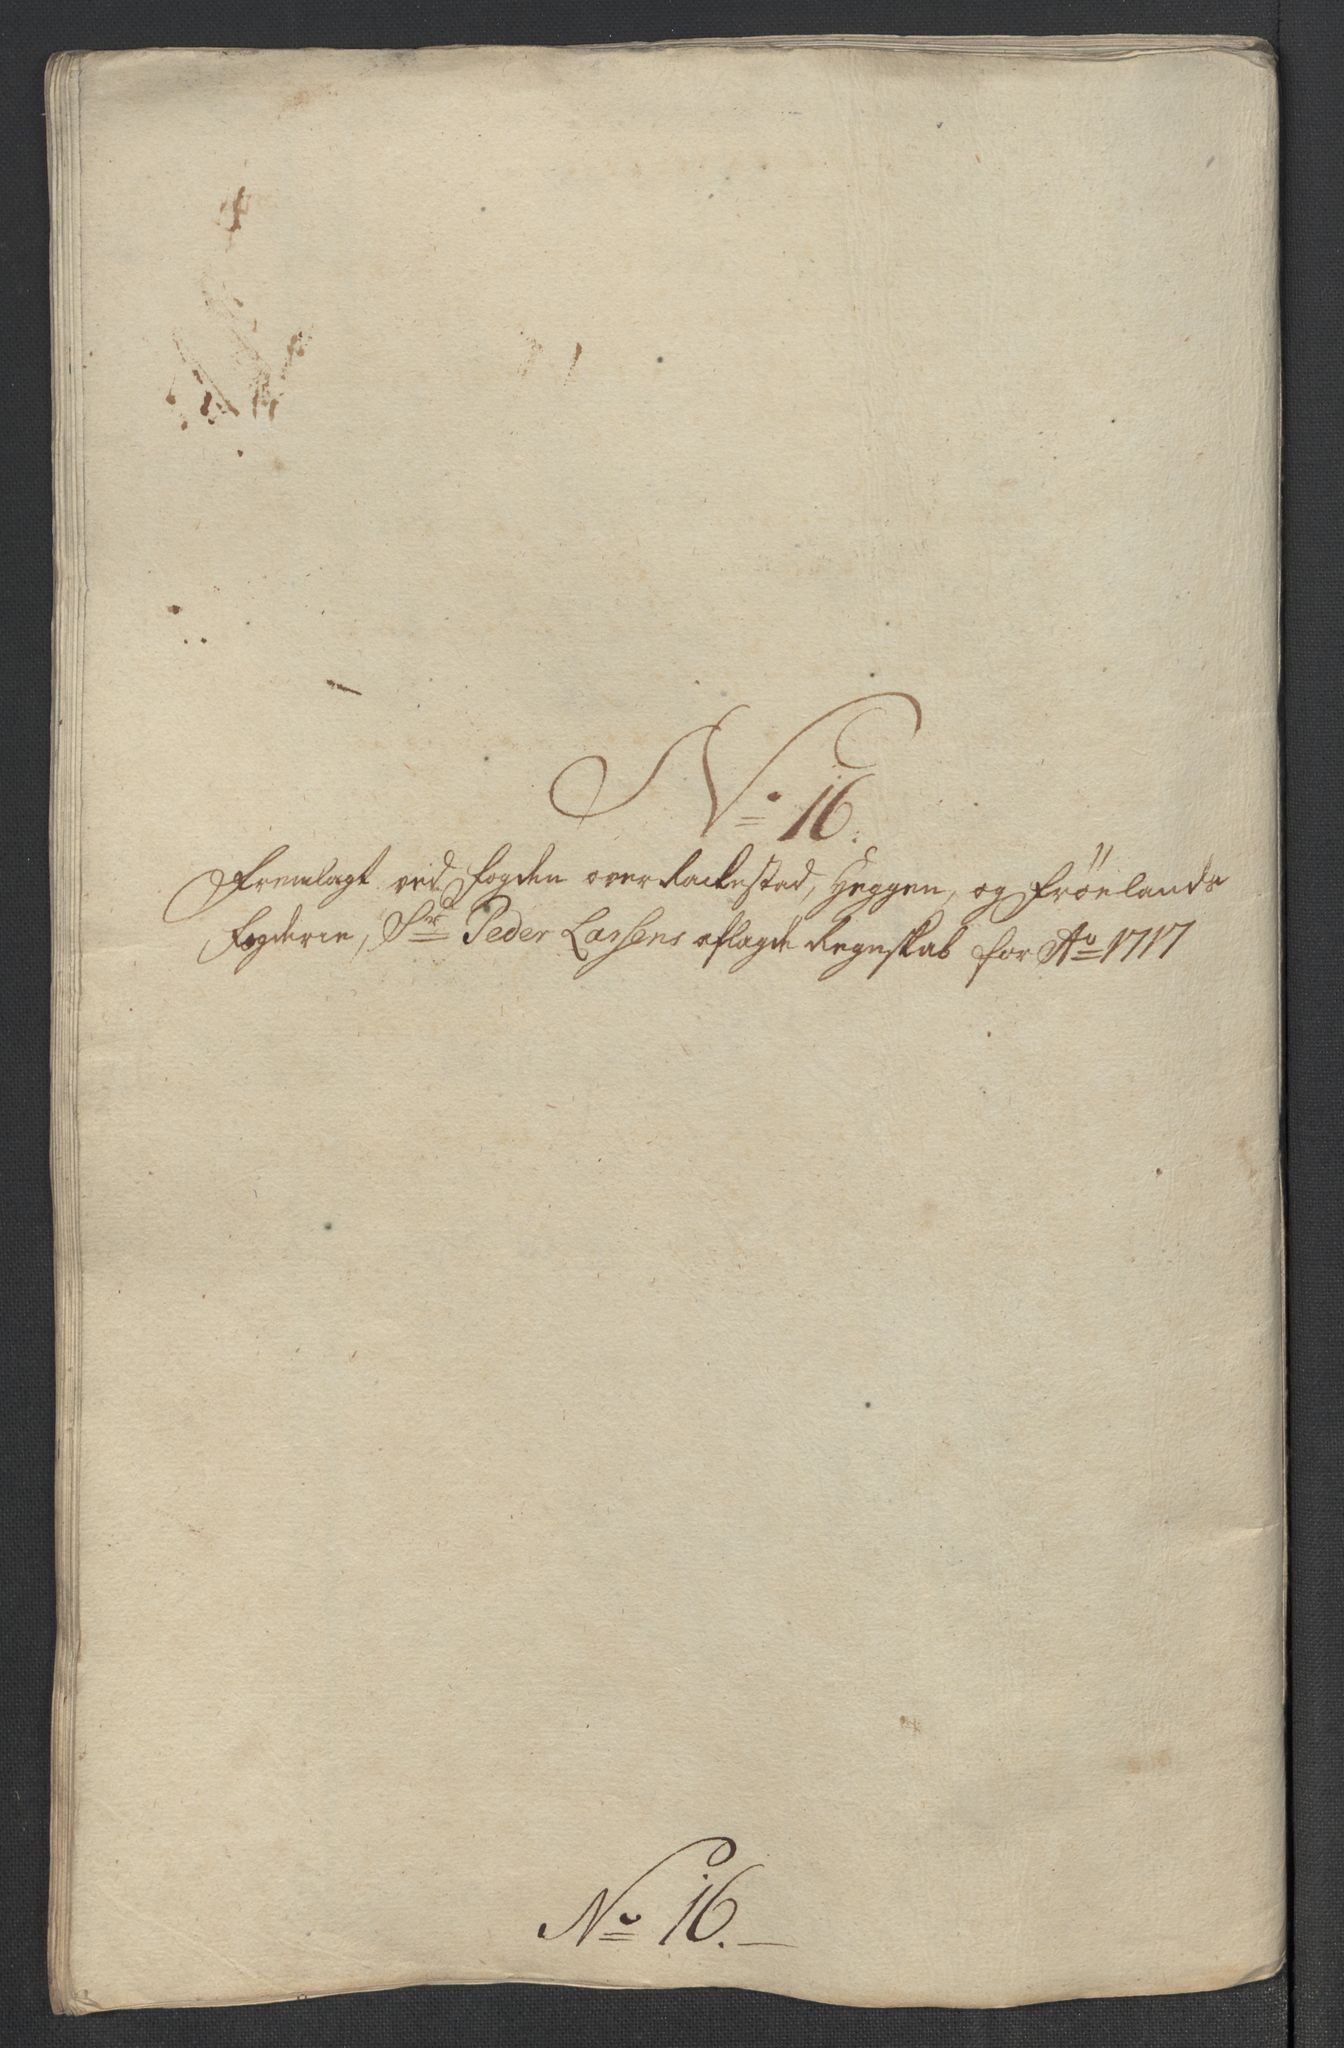 No 16.
Fremlagt ved Fogden over Rackestad, Heggen, og Frönlands
Fogderie, Sr Peder Larsens aflagde Regnskab for Ao 1717
No 16.